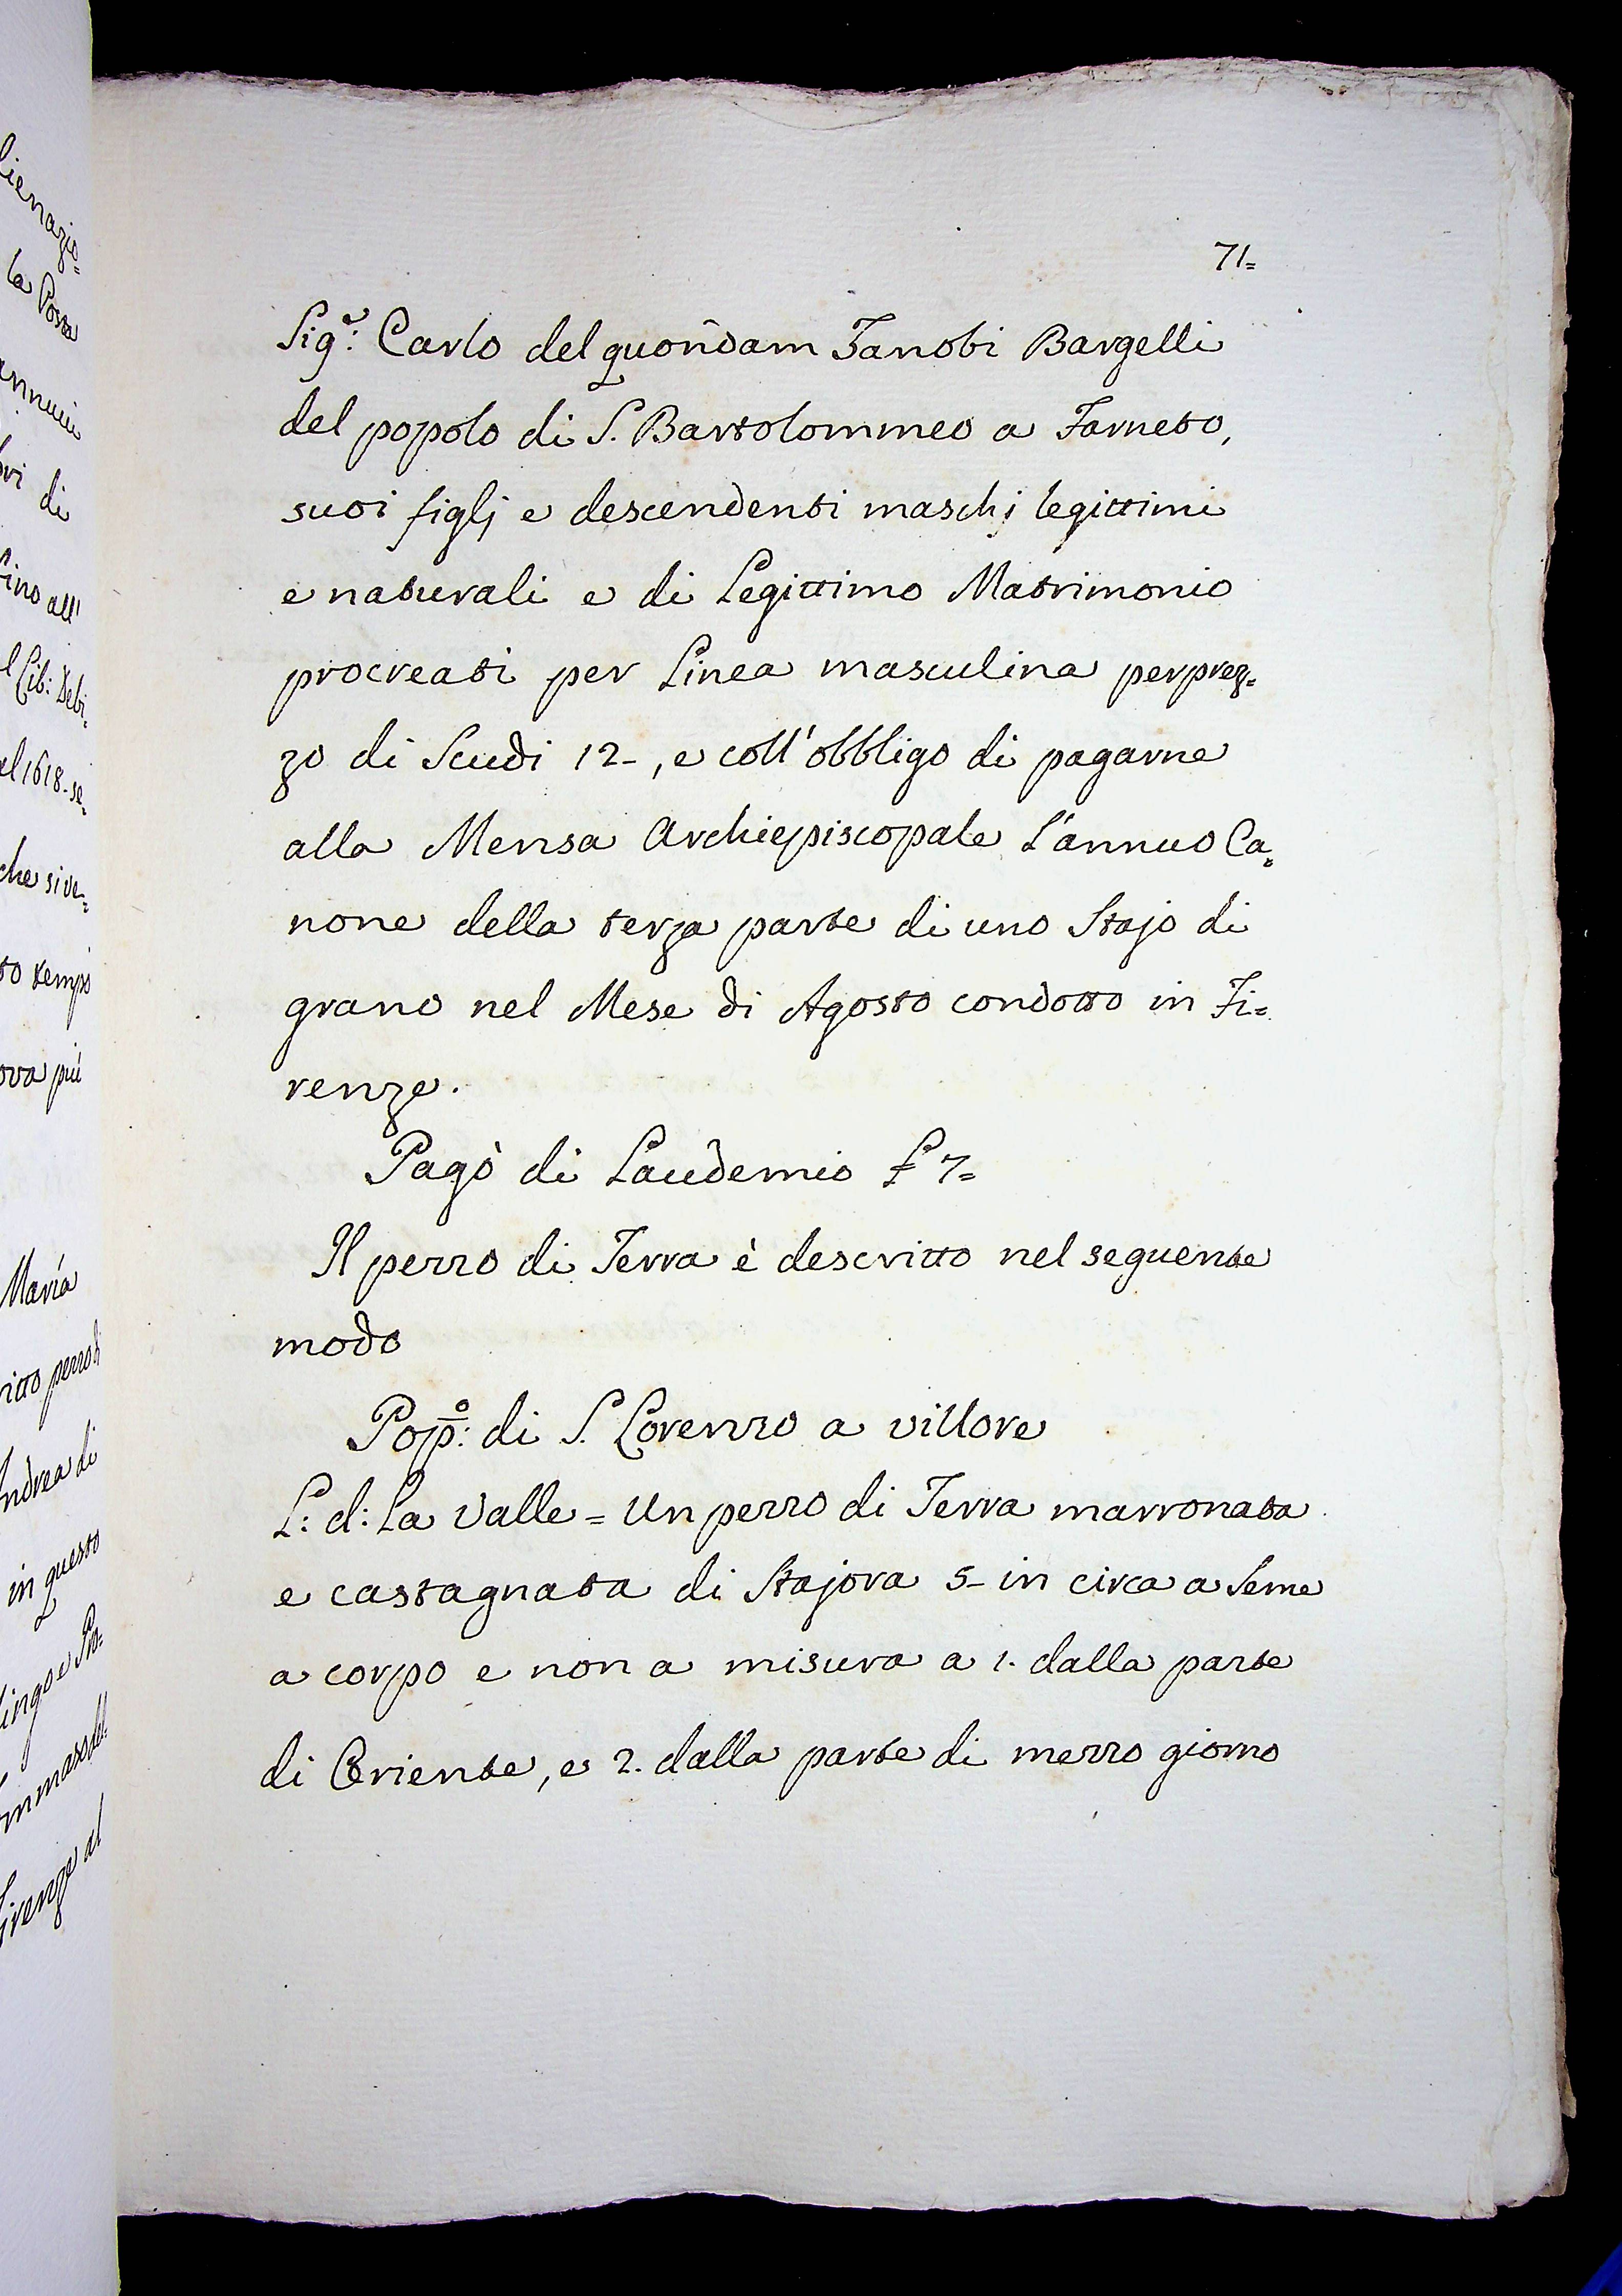 lienazio=
la Posta
annui
ori di
fino all'
l Lib: Debi=
el 1618_ se=
che si ve=
to tempo
ova più
Maria
ritto pezzo di
Andrea di
in questo
ingo e Pio=
ommaso del=
Firenze al
71=
Sig.r: Carlo del quondam Zanobi Bargelli
del popolo di S. Bartolommeo a Farneto,
suoi figlj e descendenti maschj legittimi
e naturali e di Legittimo Matrimonio
procreati per Linea masculina per prez=
zo di Scudi 12-, e coll'obbligo di pagarne
alla Mensa Archiepiscopale L'annuo Ca=
none della terza parte di uno Stajo di
grano nel Mese di Agosto condotto in Fi=
renze.
Pagò di Laudemio £ 7=
Il pezzo di Terra è descritto nel seguente
modo
Pop.o: di S. Lorenzo a villore
L: d: La Valle = Un pezzo di Terra marronata
e castagnata di Stajora 5- in circa a Seme
a corpo e non a misura a 1. dalla parte
di Oriente, e 2. dalla parte di mezzo giorno